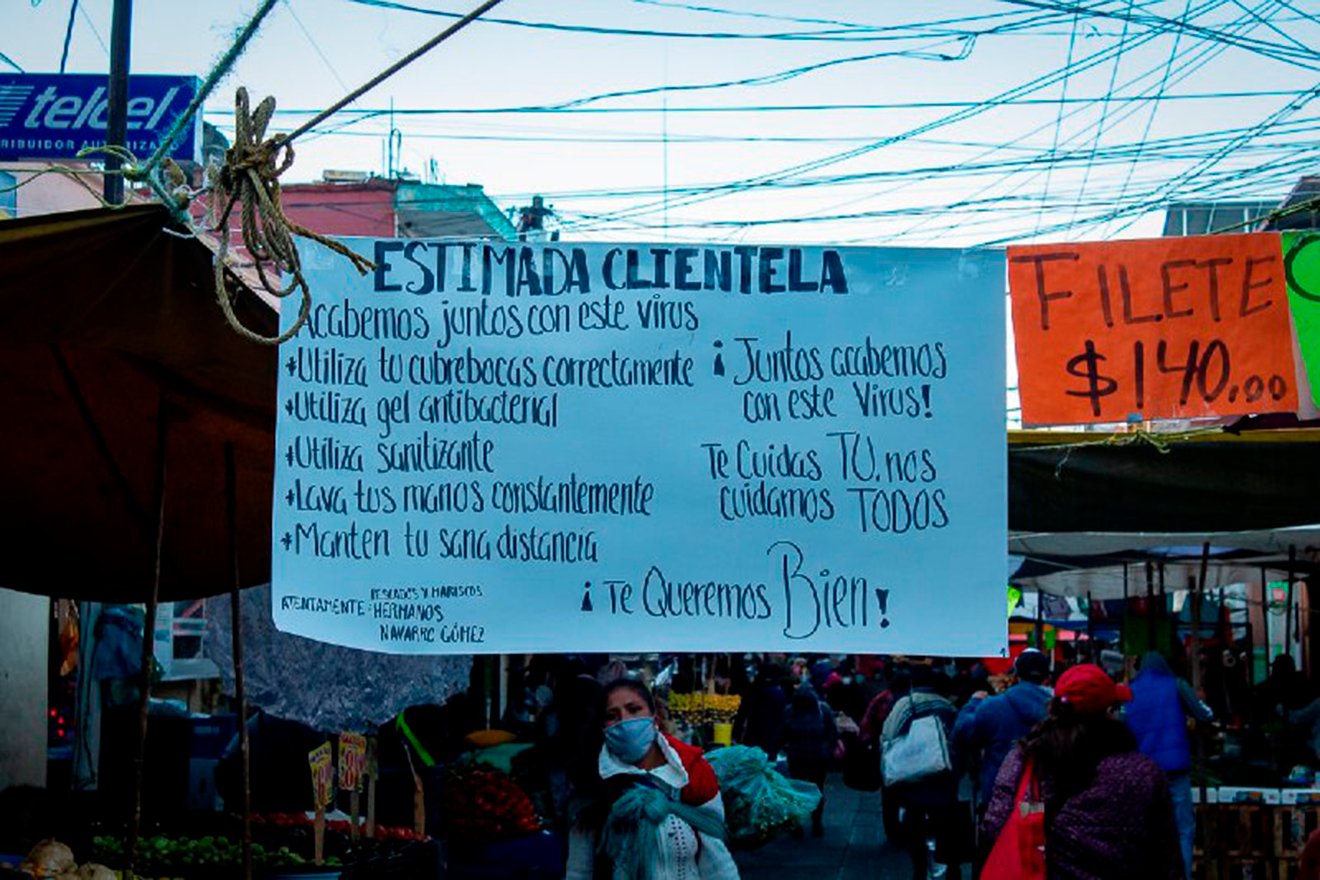 telcel
RIBUIDOR AUTORIZADO
ESTIMADA CLIENTELA
Acabemos juntos con este virus
*Utiliza tu cubrebocas correctamente
*Utiliza gel antibacterial
*Utiliza sanitizante
*Lava tus manos constantemente
*Manten tu sana distancia
¡Juntos acabemos
con este Virus!
Te Cuidas TU, nos
cuidamos TODOS
¡Te Queremos Bien!
PESCADOS Y MARISCOS
ATENTAMENTE: HERMANOS
NAVARRO GÓMEZ
FILETE
$140.00